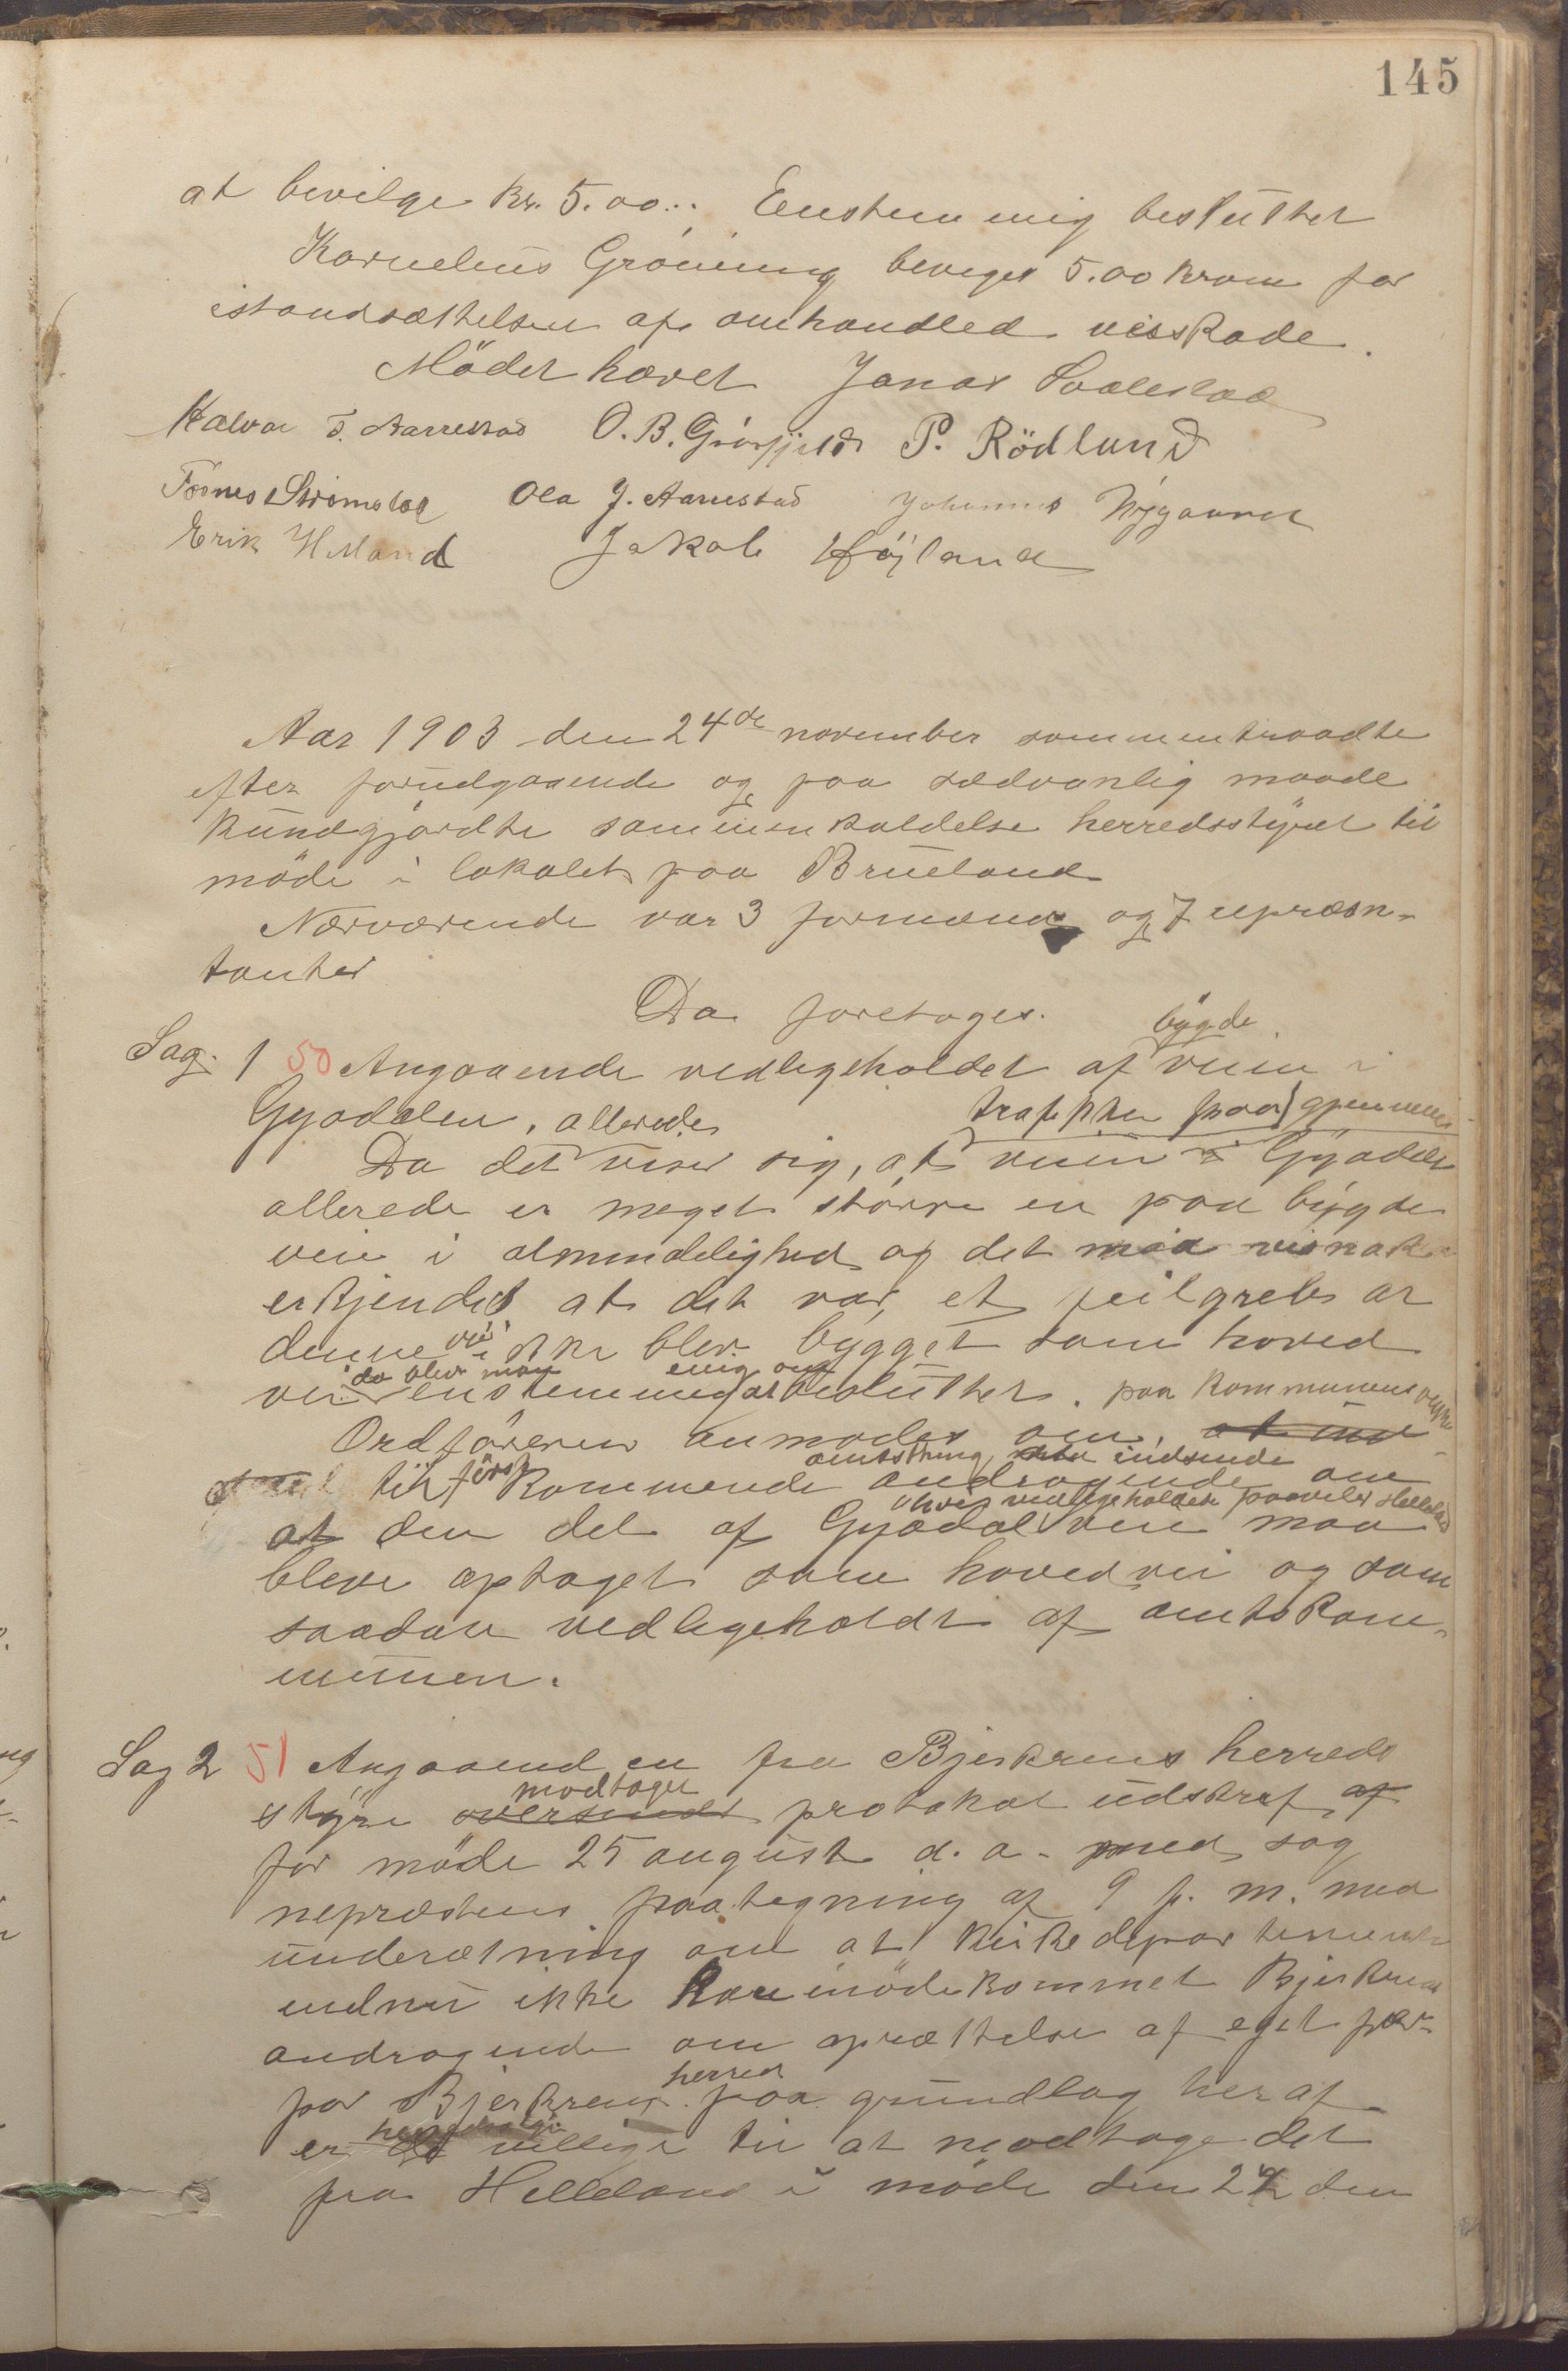 145
at bevilge kr. 5.00.. Enstemmig besluttet
Kornelius Gröning bevges 5.00 krone for
istandsættelsen af omhandled veisskade.
Mödet hævet Jonas Svalestad
Halvor T. Aarrestad O. B. Grösfjeld P. Rödland
Tönnes Strömstad Ola J. Aarrestad Johannes Nygaard
Erik Helland Jakob Höjland
Aar 1903 den 24de november sammentraadte
efter forudgaaende og paa sædvanlig maade
kundgjordte sammenkaldelse herredsstyret til
möde i lokalet paa Brueland
Nærværende var 3 formænd og 7 repræsn-
tanter
Da foretoges.
bygde
Sag. 1 50 Angaaende vedligeholdet af veien i
Gyadalen, allerede
trafikken paa gjennem
Da det viser sig, at veien i Gyadal
allerede er meget större en paa bygde
veie i almindelighed og det maa visnok
erkjendes at det var et feilgreb at
denne vei ikke blev bygget som hoved
da blev man enig om
vei enstemmig at besluttet. paa kommunens vegne
Ordföreren anmodes om, at ind
amtsthing, indsende
til först kommende andragende om
hvis vedligeholdet paaviler Helleland
at den del af Gyadal veie maa
bleve optaget som hovedvei og som
saadan vedligeholdt af amtskom-
munen.
Sag 2 51 Angaaend en fra Bjerkrems herreds
modtaget
styre oversendt protokol udskrift af
for möde 25 august d. a. med sog
nepræstens paategning af 9 f. m. med
underetning om at kirkedepartementet
endnu ikke har imödekommet Bjerkrem
andragende om oprættelse af eget
herred
for Bjerkrem. paa grundlag heraf
er de villige til at modtage det
fra Helleland i möde den 24 den